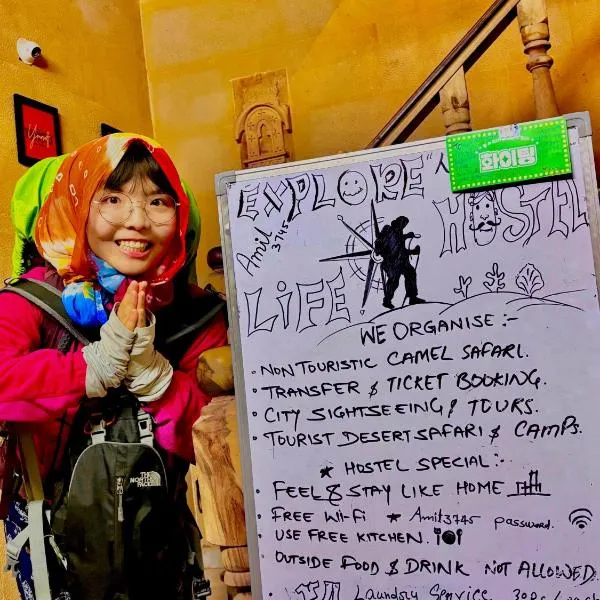 EXPLORE
화이팅
HOSTEL
Amit
3745
LIFE!
WE ORGANISE :-
• NON TOURISTIC CAMEL SAFARI.
• TRANSFER & TICKET BOOKING.
• CITY SIGHTSEEING / TOURS.
• TOURIST DESERT SAFARI & CAMPS.
★ HOSTEL SPECIAL :-
• FEEL & STAY LIKE HOME
• FREE Wi-Fi ★ Amit3745 password.
• USE FREE KITCHEN.
• OUTSIDE FOOD & DRINK NOT ALLOWED.
Laundry Service
THE
NORTH
FACE